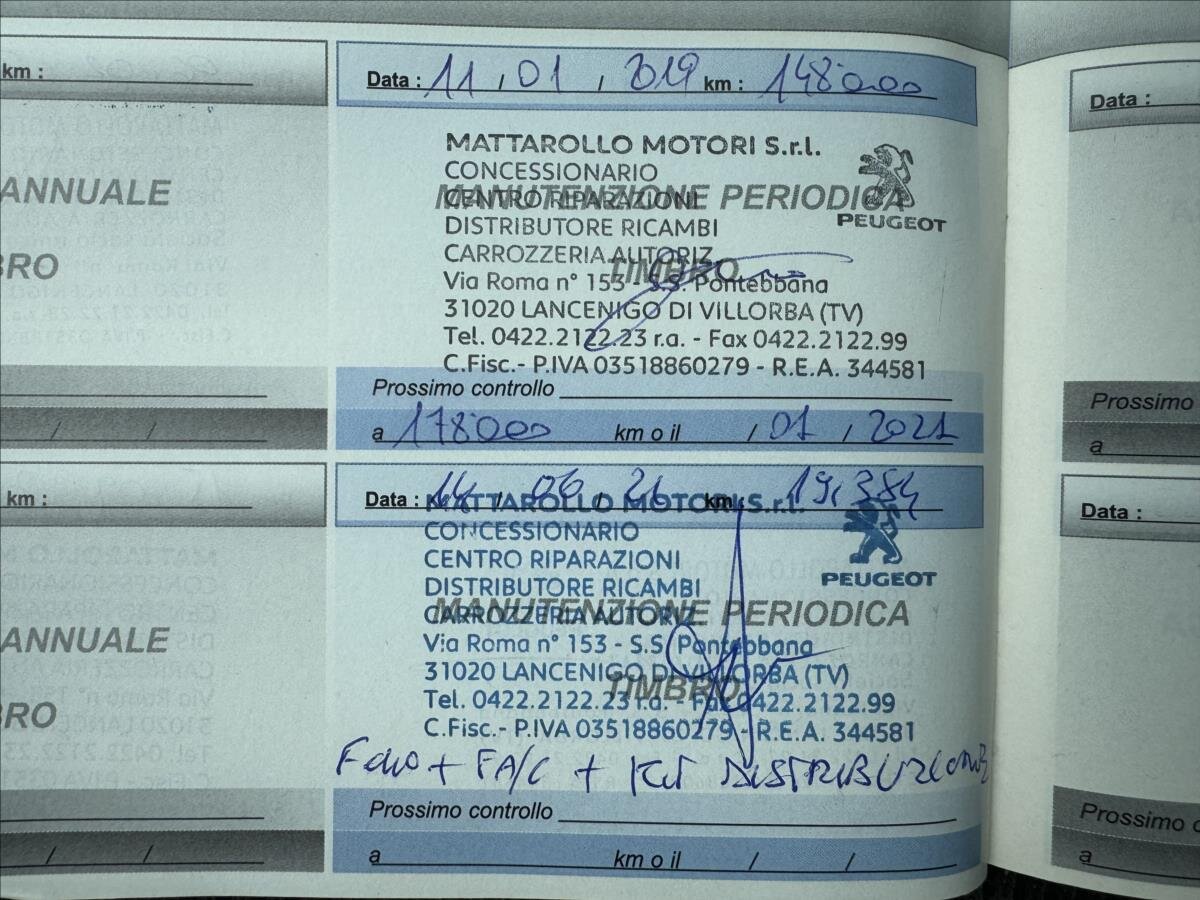 km :
ANNUALE
BRO
/ /
Data : 11 / 01 / 2019 km : 148000
MATTAROLLO MOTORI S.r.l.
CONCESSIONARIO
CENTRO RIPARAZIONI
MANUTENZIONE PERIODICA
DISTRIBUTORE RICAMBI
PEUGEOT
CARROZZERIA AUTORIZ.
TIMBRO
Via Roma n° 153 - S.S. Pontebbana
31020 LANCENIGO DI VILLORBA (TV)
Tel. 0422.2122.23 r.a. - Fax 0422.2122.99
C.Fisc.- P.IVA 03518860279 - R.E.A. 344581
Prossimo controllo
a 178000 km o il / 01 / 2021
Data :
Prossimo
a
km :
ANNUALE
BRO
/ /
Data : 14 / 06 / 21 km :
MATTAROLLO MOTORI S.r.l.
CONCESSIONARIO
CENTRO RIPARAZIONI
PEUGEOT
DISTRIBUTORE RICAMBI
CARROZZERIA AUTORIZ
MANUTENZIONE PERIODICA
Via Roma n° 153 - S.S. Pontebbana
31020 LANCENIGO DI VILLORBA (TV)
TIMBRO
Tel. 0422.2122.23 r.a. - Fax 0422.2122.99
C.Fisc.- P.IVA 03518860279 - R.E.A. 344581
+ FA/C + KIT DISTRIBUZIONE
Prossimo controllo
a km o il / /
Data :
Prossimo c
a